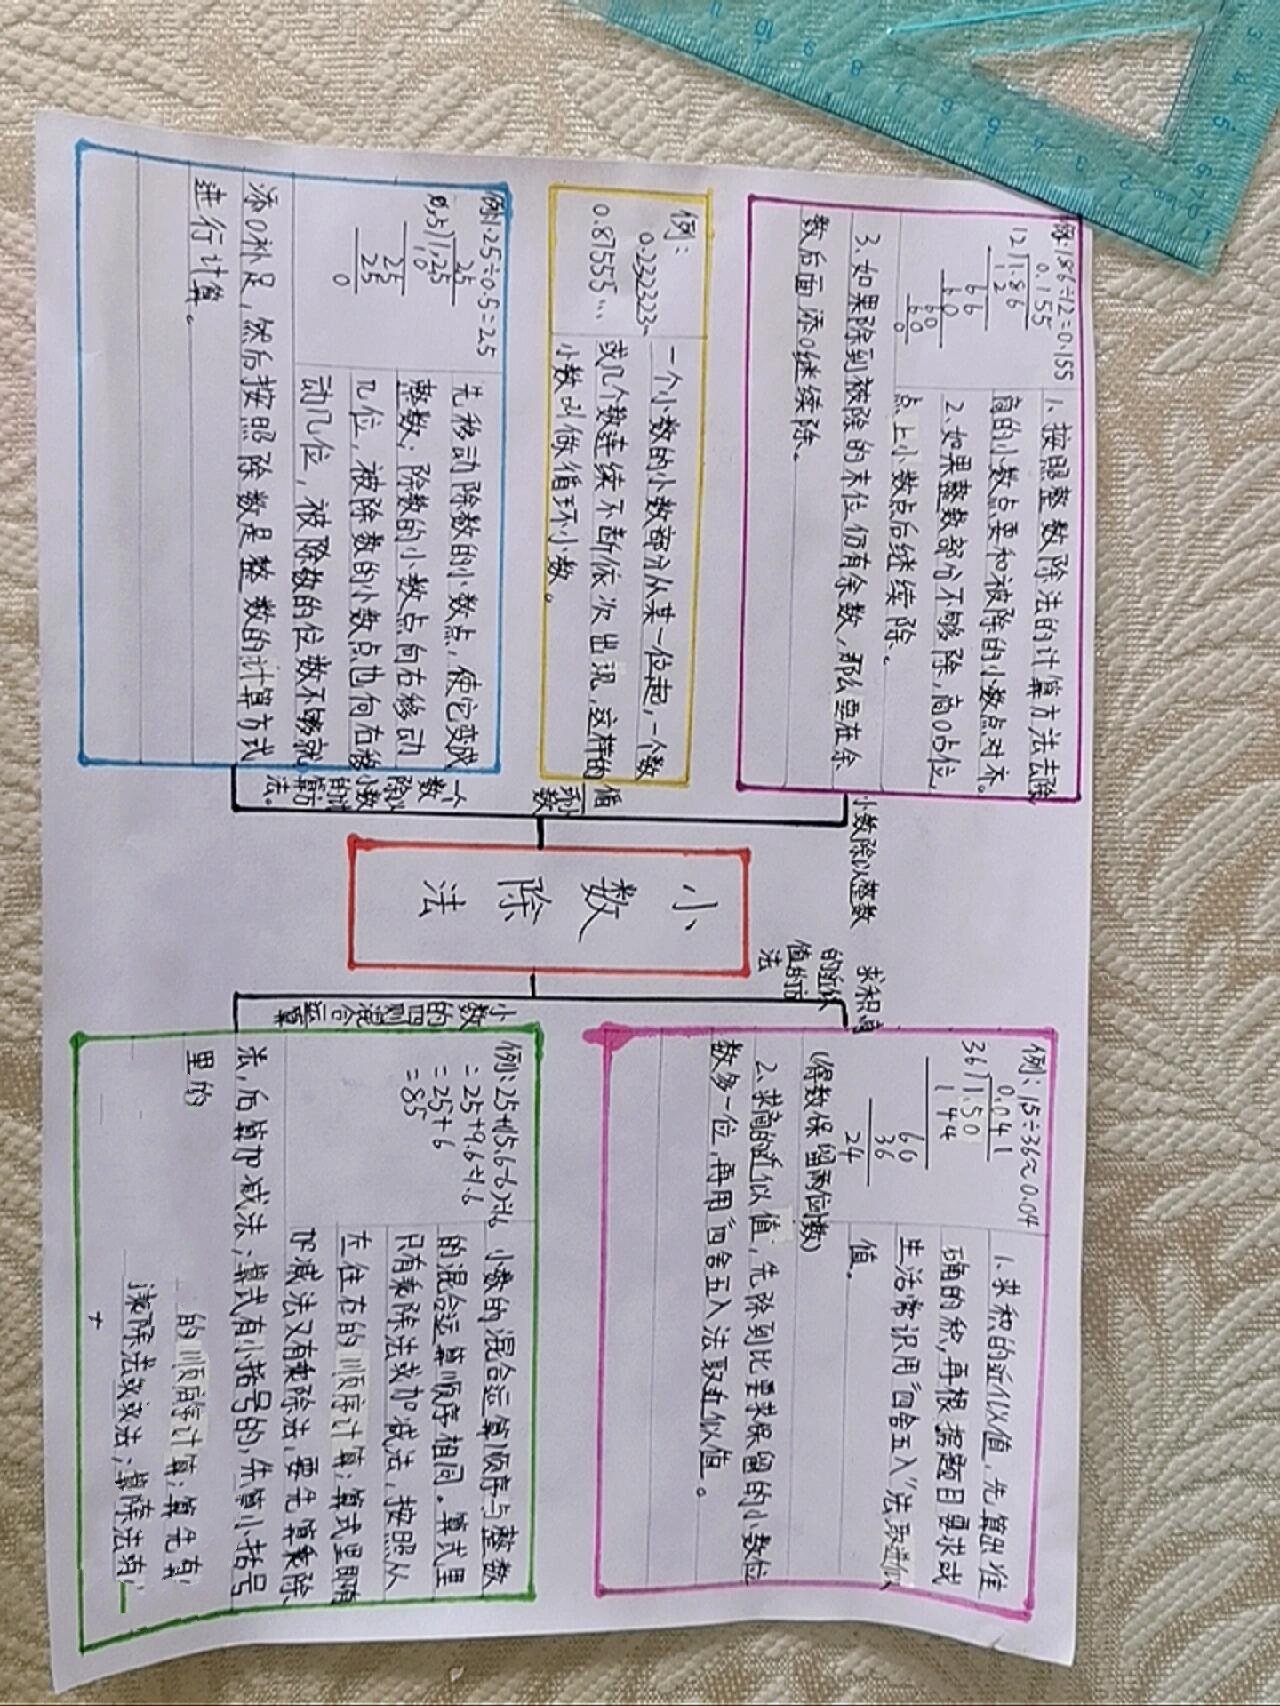 小数除法
小数除以整数
例:1.86÷12=0.155
0.155
12)1.86
12
66
60
60
60
0
1、按照整数除法的计算方法去除
商的小数点要和被除的小数点对齐。
2、如果整数部分不够除,商0占位,
点上小数点后继续除。
3、如果除到被除的末位仍有余数,那么要在余
数后面添0继续除。
循环小数
例:
0.232323…
0.87555…
一个小数的小数部分从某一位起,一个数
或几个数连续不断依次出现,这样的
小数叫做循环小数。
一个数除以小数的计算方法。
例:1.25÷0.5=2.5
25
0.5)1.25
10
25
25
0
先移动除数的小数点,使它变成
整数;除数的小数点向右移动
几位,被除数的小数点也向右移
动几位,被除数的位数不够就
添0补足,然后按照除数是整数的计算方式
进行计算。
求积商
的近似
值的方
法
例:15÷36≈0.04
0.041
36)1.50
144
60
36
24
(得数保留两位小数)
1、求积的近似值,先算出准
确的积,再根据题目要求或
生活常识用“四舍五入”法取近似
值。
2、求商的近似值,先除到比要求保留的小数位
数多一位,再用“四舍五入法取近似值。
小数的四则混合运算
=25+9.6÷1.6
=25+6
=85
小数的混合运算顺序与整数
的混合运算顺序相同。算式里
只有乘除法或加减法,按照从
左往右的顺序计算;算式里既有
加减法又有乘除法,要先算乘除
法,后算加减法;算式有小括号的,先算小括号
里的
的顺序计算;算先有
乘除法或减法;算除法有